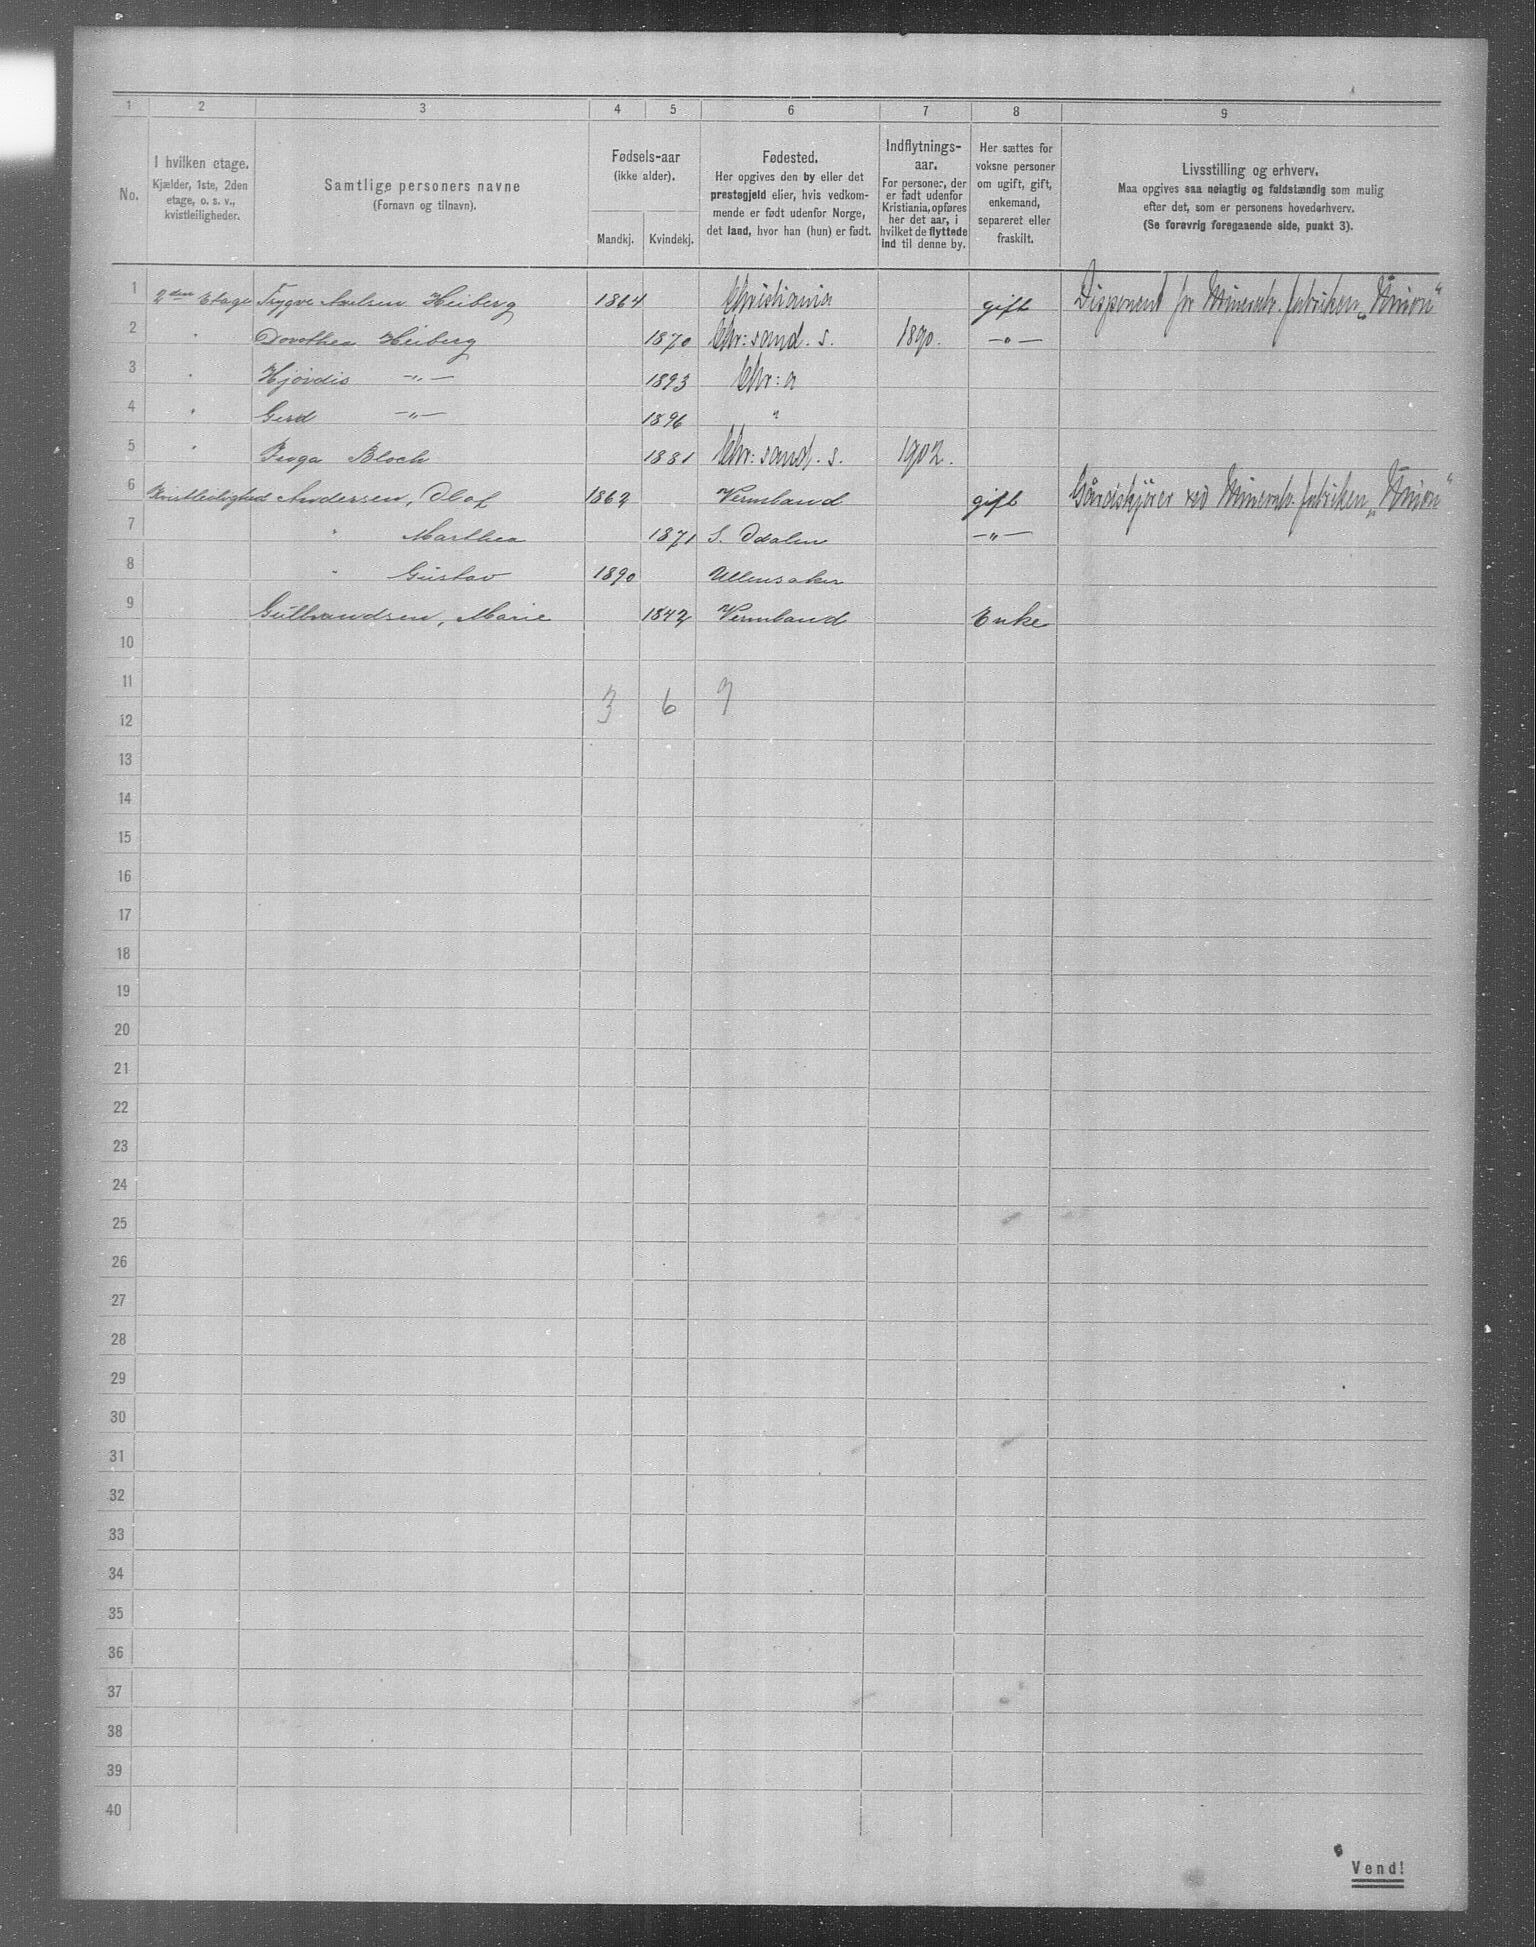 1 2 3 4 5 6 7 8 9
No.
I hvilken etage.
Kjælder, 1ste, 2den
etage, o. s. v.,
kvistleiligheder.
Samtlige personers navne
(Fornavn og tilnavn).
Fødsels-aar
(ikke alder).
Mandkj. Kvindekj.
Fødested.
Her opgives den by eller det
prestegjeld eller, hvis vedkom-
mende er født udenfor Norge,
det land, hvor han (hun) er født.
Indflytnings-
aar.
For personer, der
er født udenfor
Kristiania, opføres
her det aar, i
hvilket de flyttede
ind til denne by.
Her sættes for
voksne personer
om ugift, gift,
enkemand,
separeret eller
fraskilt.
Livsstilling og erhverv.
Maa opgives saa nøiagtig og fuldstændig som mulig
efter det, som er personens hovederhverv.
(Se forøvrig foregaaende side, punkt 3).
1 2den Etage Trygve Axelsen Heiberg 1864 Christiania gift Disponent for Mineralv. fabriken „Union“
2 " Dorothea Heiberg 1870 Chr:sand. s. 1890. —"—
3 " Hjördis —"— 1893 Chr:a
4 " Gerd —"— 1896 "
5 " Inga Bloch 1881 Chr:sand. s. 1902.
6 Kvistleilighed Andersen, Olaf 1862 Vermland gift Gårdskjører ved Mineralv. fabriken „Union“
7 " Marthea 1871 S. Odalen —"—
8 " Gustav 1890 Ullensaker
9 Gulbrandsen, Marie 1842 Vermland Enke
10
11
3 6 7
12
13
14
15
16
17
18
19
20
21
22
23
24
25
26
27
28
29
30
31
32
33
34
35
36
37
38
39
40
Vend!